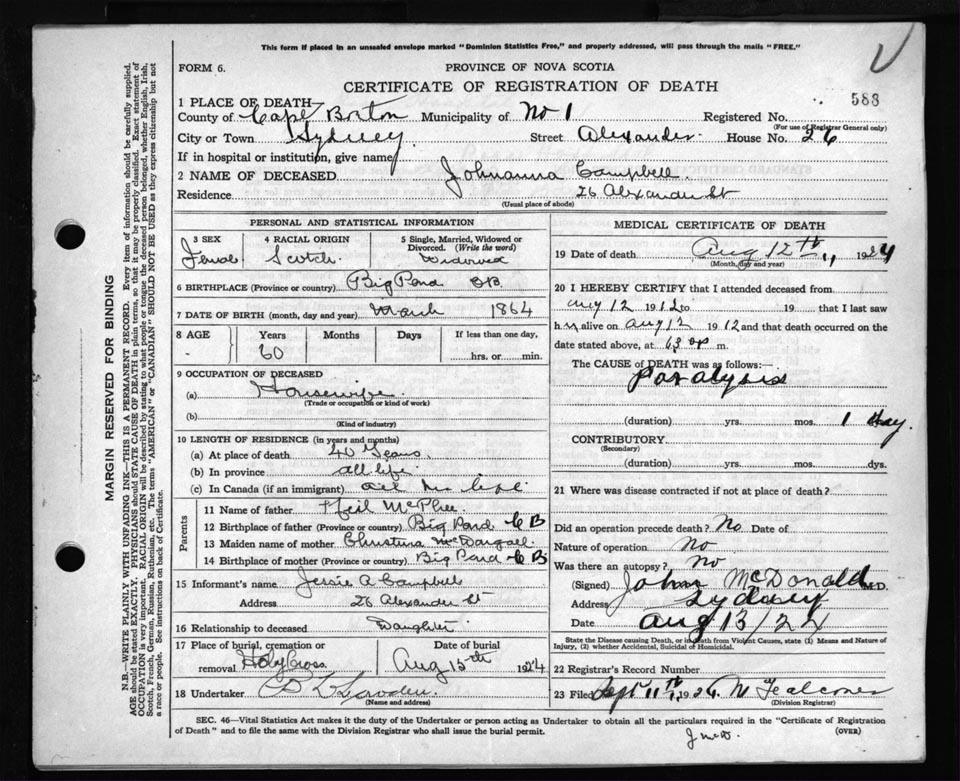 This form if placed in an unsealed envelope marked "Dominion Statistics Free," and properly addressed, will pass through the mails "FREE."
FORM 6.
PROVINCE OF NOVA SCOTIA
CERTIFICATE OF REGISTRATION OF DEATH
583
1 PLACE OF DEATH
County of Cape Breton Municipality of No 1 Registered No.
(For use of Registrar General only)
City or Town Sydney Street Alexander House No. 26
If in hospital or institution, give name
2 NAME OF DECEASED Johnanna Campbell
Residence 26 Alexander St
(Usual place of abode)
PERSONAL AND STATISTICAL INFORMATION
3 SEX Female
4 RACIAL ORIGIN Scotch
5 Single, Married, Widowed or Divorced. (Write the word) Widowed
6 BIRTHPLACE (Province or country) Big Pond CB
7 DATE OF BIRTH (month, day and year) March 1864
8 AGE Years 60 Months Days If less than one day, hrs. or min.
9 OCCUPATION OF DECEASED
(a) Housewife
(Trade or occupation or kind of work)
(b)
(Kind of industry)
10 LENGTH OF RESIDENCE (in years and months)
(a) At place of death 40 Years
(b) In province all life
(c) In Canada (if an immigrant) all life
Parents
11 Name of father Neil McPhee
12 Birthplace of father (Province or country) Big Pond C B
13 Maiden name of mother Christina McDougall
14 Birthplace of mother (Province or country) Big Pond C B
15 Informant's name Jessie A Campbell
Address 26 Alexander St
16 Relationship to deceased Daughter
17 Place of burial, cremation or removal Holy Cross
Date of burial Aug 15th 1924
18 Undertaker
(Name and address)
MEDICAL CERTIFICATE OF DEATH
19 Date of death Aug 12th 1924
(Month, day and year)
20 I HEREBY CERTIFY that I attended deceased from
Aug 12 1912 to 19 that I last saw
h er alive on Aug 12 1912 and that death occurred on
date stated above, at m.
The CAUSE of DEATH was as follows:—
Paralysis
(duration) yrs. mos. 1 day.
CONTRIBUTORY
(Secondary)
(duration) yrs. mos. dys.
21 Where was disease contracted if not at place of death?
Did an operation precede death? No Date of
Nature of operation No
Was there an autopsy? No
(Signed) John McDonald M.D.
Address Sydney
Date Aug 13/24
State the Disease causing Death, or in death from Violent Causes, state (1) Means and Nature of Injury, (2) whether Accidental, Suicidal or Homicidal.
22 Registrar's Record Number
23 Filed Sept 11th 1924 N Falconer
(Division Registrar)
SEC. 46—Vital Statistics Act makes it the duty of the Undertaker or person acting as Undertaker to obtain all the particulars required in the "Certificate of Registration
of Death" and to file the same with the Division Registrar who shall issue the burial permit.
(OVER)
MARGIN RESERVED FOR BINDING
N.B.—WRITE PLAINLY WITH UNFADING INK—THIS IS A PERMANENT RECORD. Every item of information should be carefully supplied.
AGE should be stated EXACTLY. PHYSICIANS should STATE CAUSE OF DEATH in plain terms, so that it may be properly classified. Exact statement of
OCCUPATION is very important. RACIAL ORIGIN will be described by stating to what people or tongue the deceased person belonged, whether English, Irish,
Scotch, French, German, Russian, Ruthenian, etc. The terms "AMERICAN" or "CANADIAN" SHOULD NOT BE USED as they express citizenship but not
a race or people. See instructions on back of Certificate.